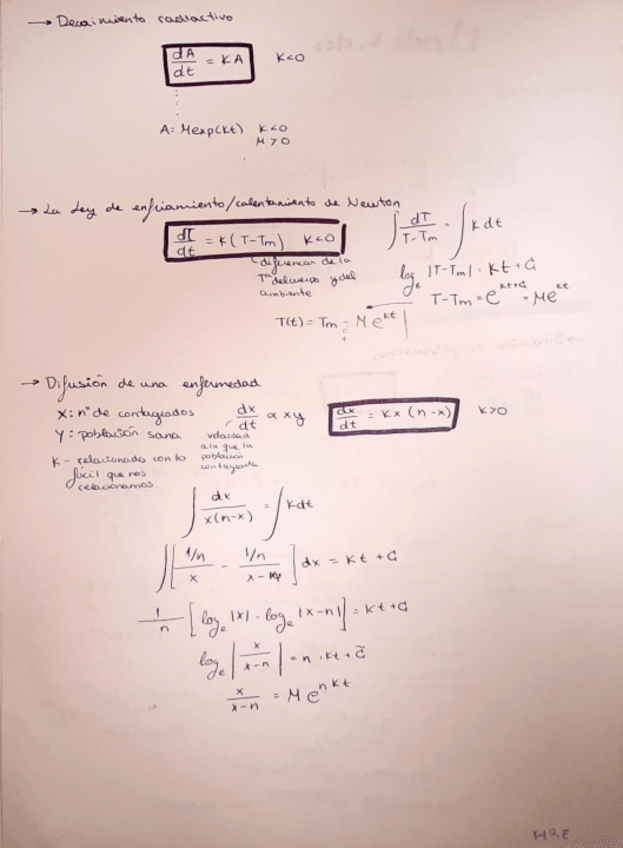 → Decaimiento radioactivo
dA/dt = KA K<0
A = M exp(Kt) K<0
M>0
→ La Ley de enfriamiento/calentamiento de Newton
dT/dt = K(T-Tm) K<0
diferencia de la
Tª del cuerpo y del
ambiente
∫ dT/(T-Tm) = ∫ K dt
log_e |T-Tm| = Kt+C
T-Tm = e^(Kt+C) = Me^(Kt)
T(t) = Tm ± M e^(Kt)
→ Difusión de una enfermedad
X: nº de contagiados
Y: población sana
K - relacionado con lo
fácil que nos
relacionamos
dx/dt ∝ xy
velocidad
a la que la
población
contagiada
dx/dt = Kx(n-x) K>0
∫ dx/(x(n-x)) = ∫ Kdt
∫ [ (1/n)/x - (1/n)/(x-n) ] dx = Kt + C
1/n [ log_e |x| - log_e |x-n| ] = Kt + C
log_e | x/(x-n) | = n·Kt + C̃
x/(x-n) = M e^(nKt)